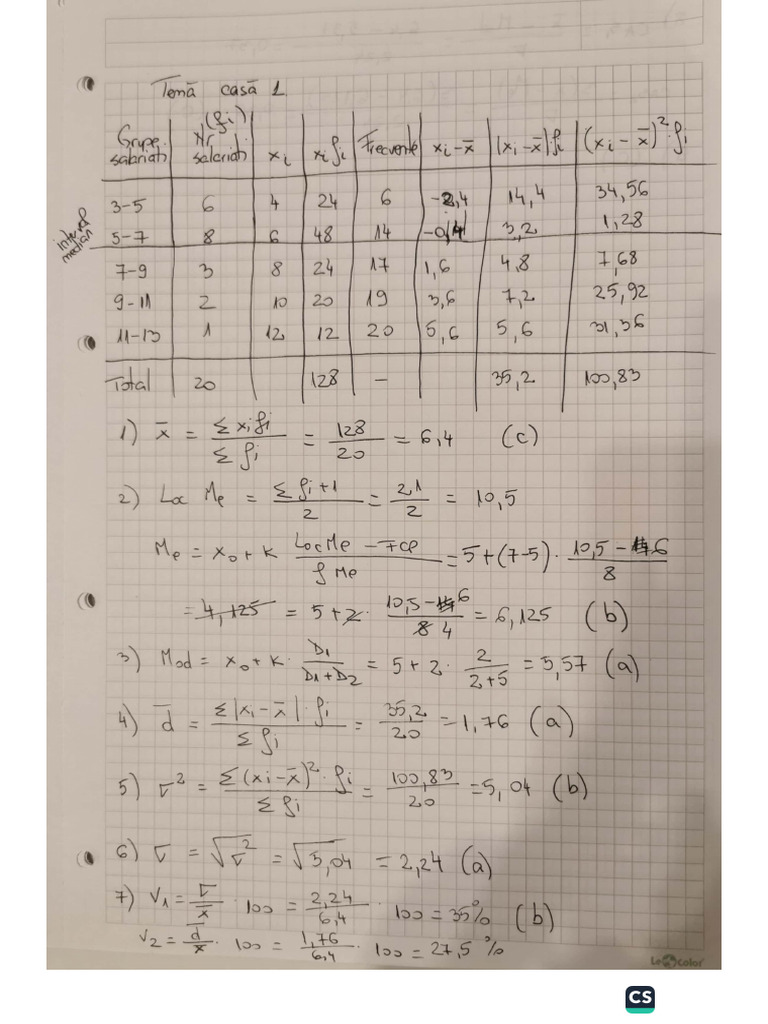 Temă casă 1
Grupe salariati | Nr. salariati (fi) | xi | xifi | Frecvente | xi - x̄ | |xi - x̄| fi | (xi - x̄)² · fi
3-5 | 6 | 4 | 24 | 6 | -2,4 | 14,4 | 34,56
interval median
5-7 | 8 | 6 | 48 | 14 | -0,4 | 3,2 | 1,28
7-9 | 3 | 8 | 24 | 17 | 1,6 | 4,8 | 7,68
9-11 | 2 | 10 | 20 | 19 | 3,6 | 7,2 | 25,92
11-13 | 1 | 12 | 12 | 20 | 5,6 | 5,6 | 31,36
Total | 20 | | 128 | - | | 35,2 | 100,83
1) x̄ = Σ xifi / Σ fi = 128/20 = 6,4 (c)
2) Loc Me = Σ fi+1 / 2 = 21/2 = 10,5
Me = x0 + k LocMe - Fcp / fMe = 5 + (7-5) · 10,5 - 6 / 8
= 4,125 = 5 + 2 · 10,5 - 6 / 8 4 = 6,125 (b)
3) Mod = x0 + k · D1 / D1+D2 = 5 + 2 · 2 / 2+5 = 5,57 (a)
4) d̄ = Σ|xi - x̄| · fi / Σ fi = 35,2/20 = 1,76 (a)
5) σ² = Σ(xi - x̄)² · fi / Σ fi = 100,83/20 = 5,04 (b)
6) σ = √σ² = √5,04 = 2,24 (a)
7) V1 = σ/x̄ · 100 = 2,24/6,4 · 100 = 35% (b)
V2 = d̄/x̄ · 100 = 1,76/6,4 · 100 = 27,5 %
LeColor
CS